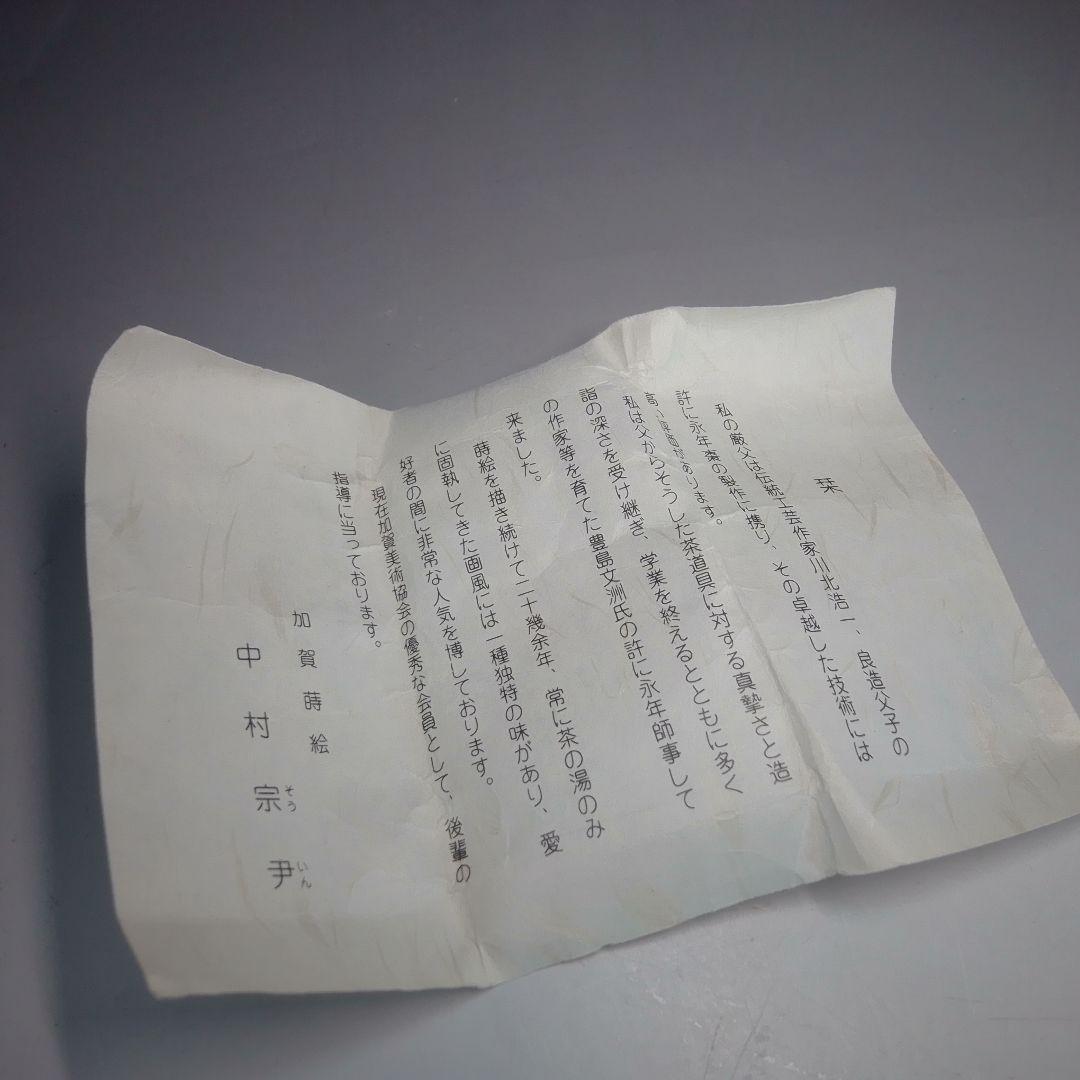 栞
私の厳父は伝統工芸作家川北浩一、良造父子の
許に永年棗の製作に携り、その卓越した技術には
高い評価があります。
私は父からそうした茶道具に対する真摯さと造
詣の深さを受け継ぎ、学業を終えるとともに多く
の作家等を育てた豊島文洲氏の許に永年師事して
来ました。
蒔絵を描き続けて二十幾余年、常に茶の湯のみ
に固執してきた画風には一種独特の味があり、愛
好者の間に非常な人気を博しております。
現在加賀美術協会の優秀な会員として、後輩の
指導に当っております。
加賀蒔絵
中村宗尹
そういん